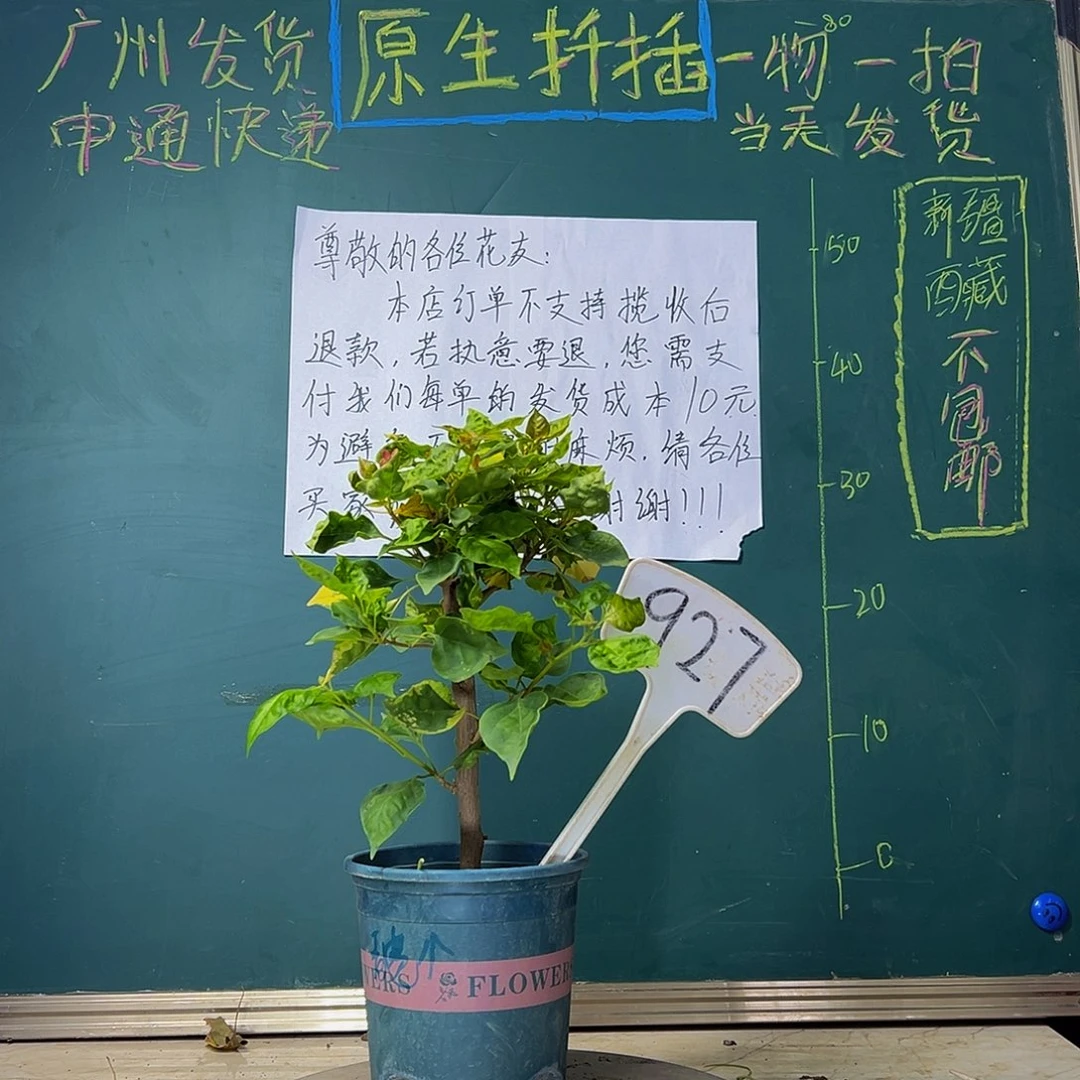 广州发货
原生扦插
一物一拍
申通快递
当天发货
新疆
西藏
不包邮
尊敬的各位花友:
本店订单不支持揽收后
退款,若执意要退,您需支
付我们每单的发货成本10元.
为避 麻烦.请各位
买家 谢谢!!!
50
40
30
20
10
0
927
VERS FLOWERS